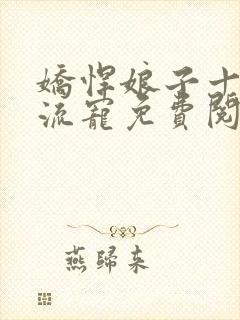 嬌悍娘子十
流寵免費閱
燕歸來